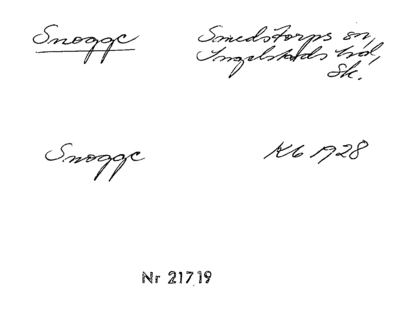 Snogge Smedstorps sn,
Ingelstads hd,
Sk.
Snogge Kb 1928
Nr 21719